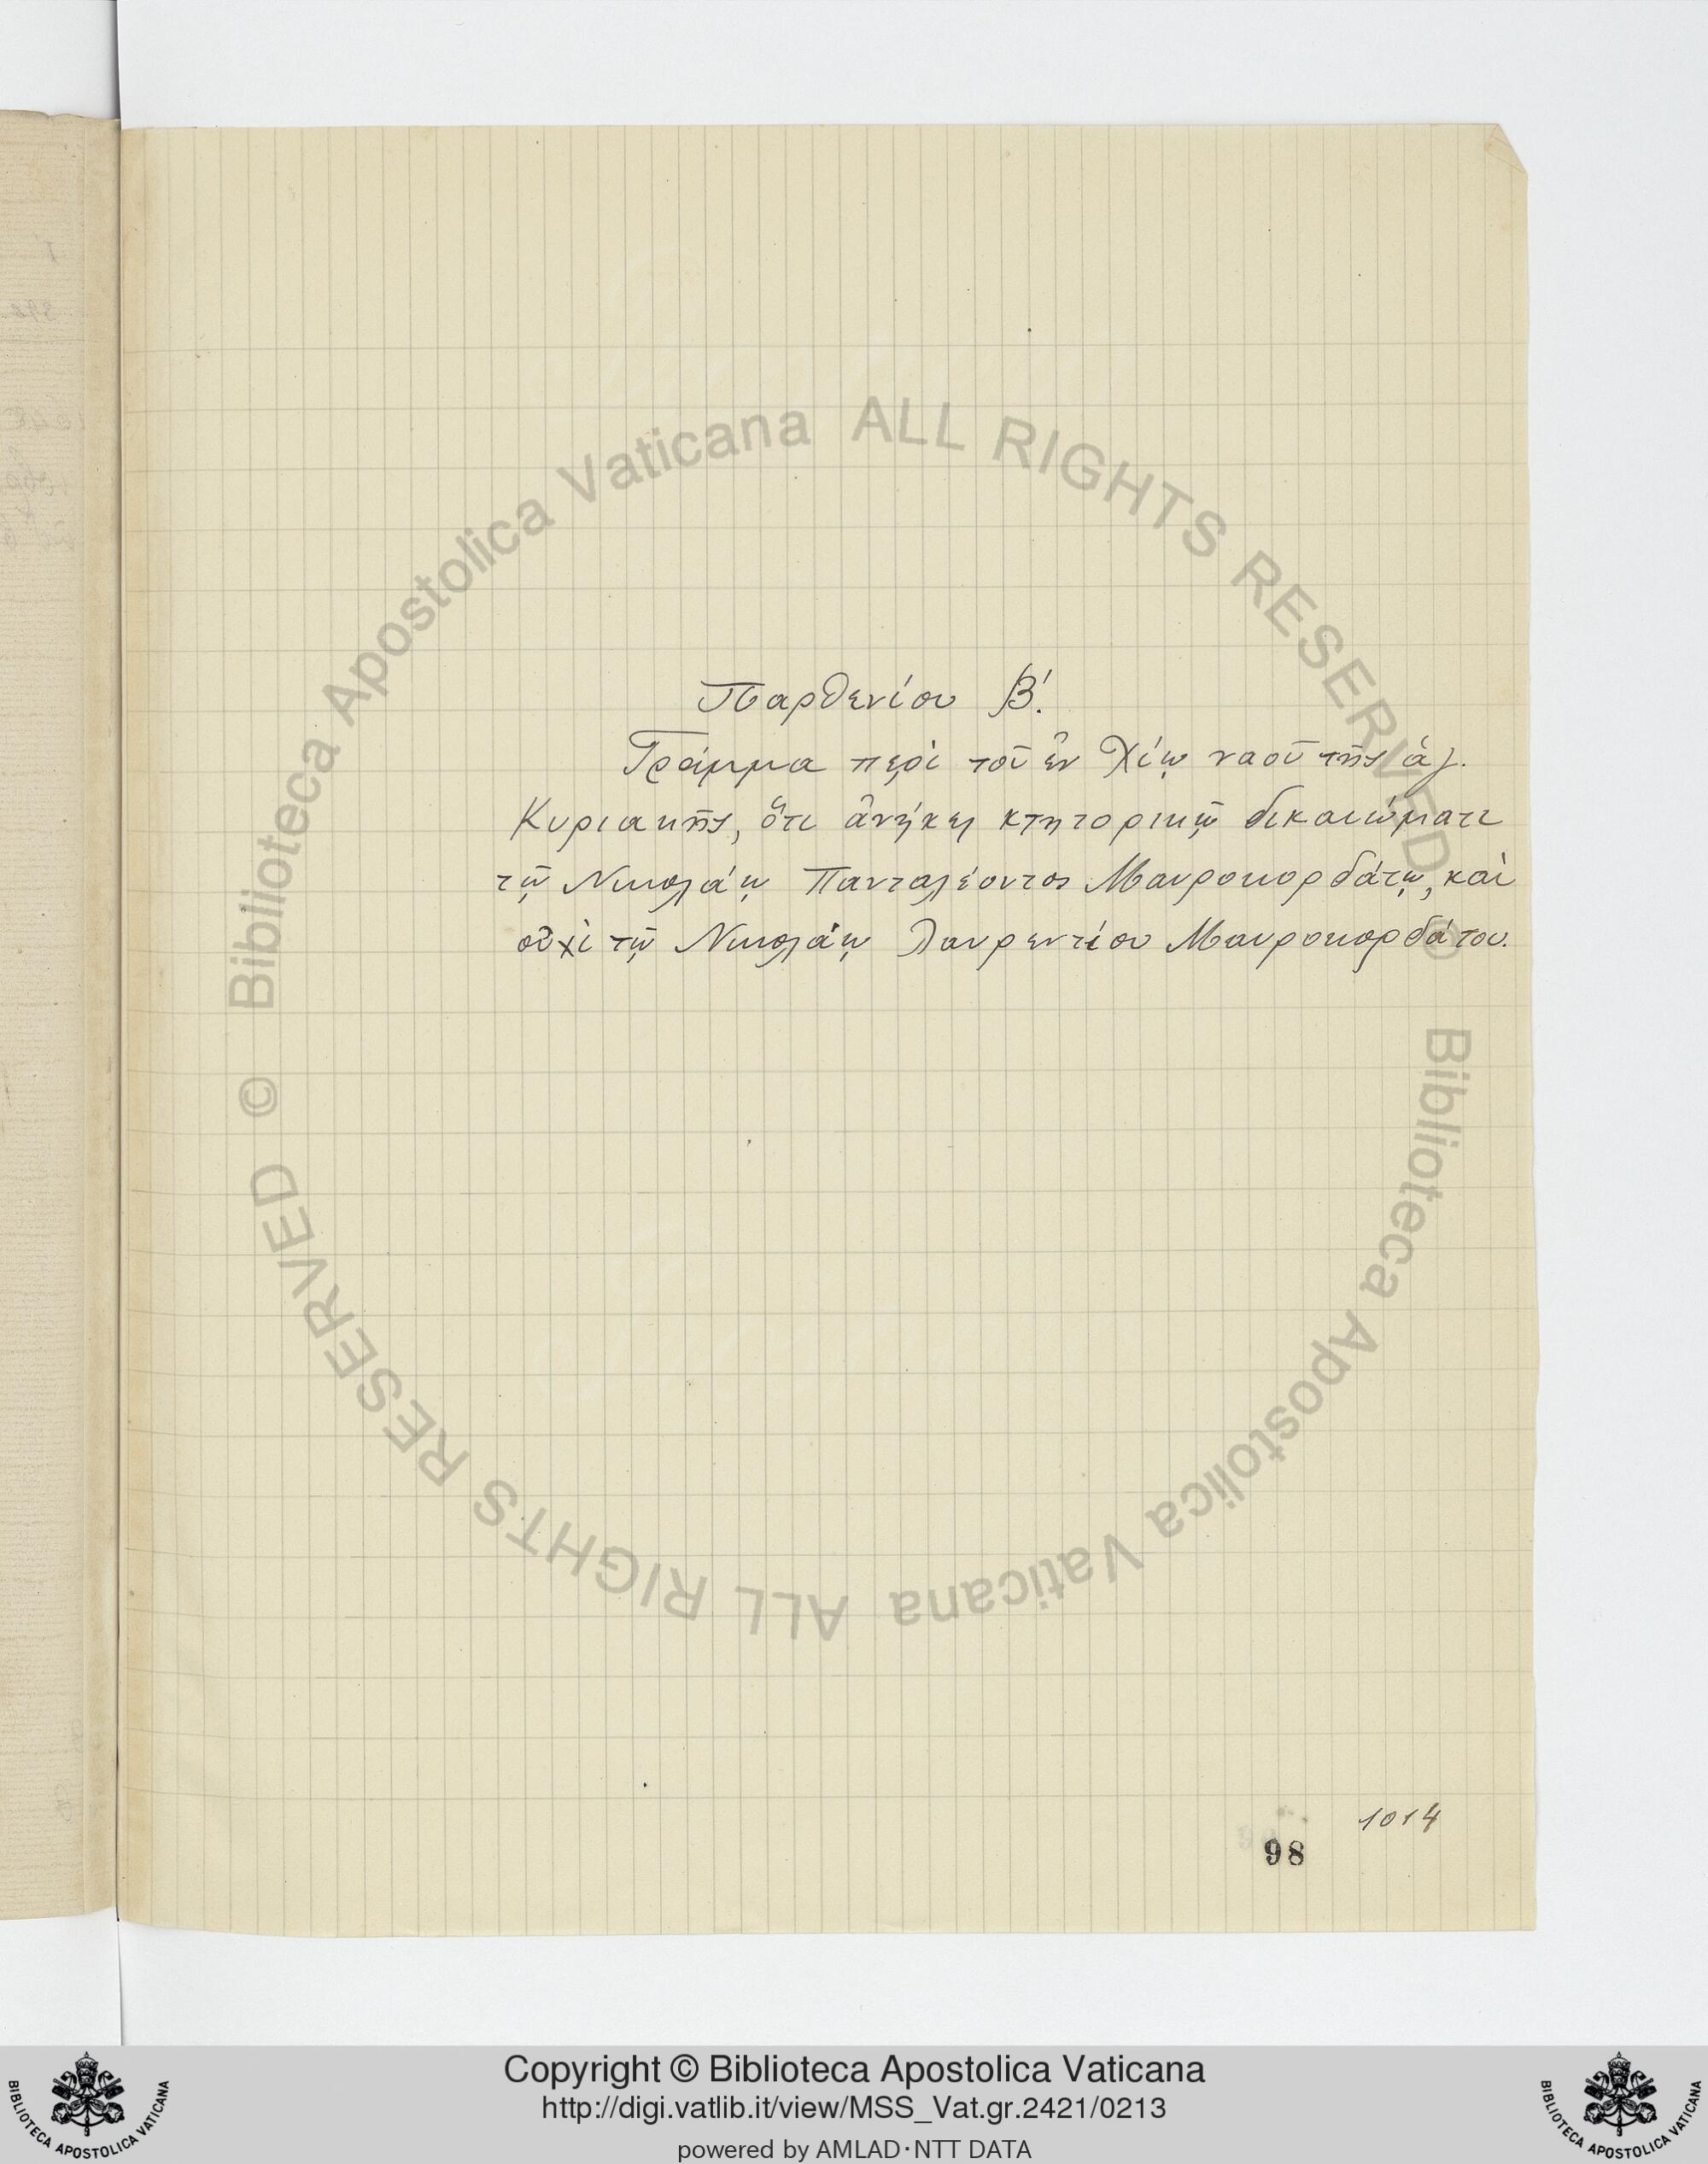 Παρθενίου Β΄.
Γράμμα περὶ τοῦ ἐν Χίῳ ναοῦ τῆς ἁγ.
Κυριακῆς, ὅτι ἀνήκει κτητορικῷ δικαιώματι
τῷ Νικολάῳ Πανταλέοντος Μαυροκορδάτῳ, καὶ
οὐχὶ τῷ Νικολάῳ Λαυρεντίου Μαυροκορδάτου.
1014
98
© Biblioteca Apostolica Vaticana ALL RIGHTS RESERVED
© Biblioteca Apostolica Vaticana ALL RIGHTS RESERVED
BIBLIOTECA APOSTOLICA VATICANA
Copyright © Biblioteca Apostolica Vaticana
http://digi.vatlib.it/view/MSS_Vat.gr.2421/0213
powered by AMLAD·NTT DATA
BIBLIOTECA APOSTOLICA VATICANA